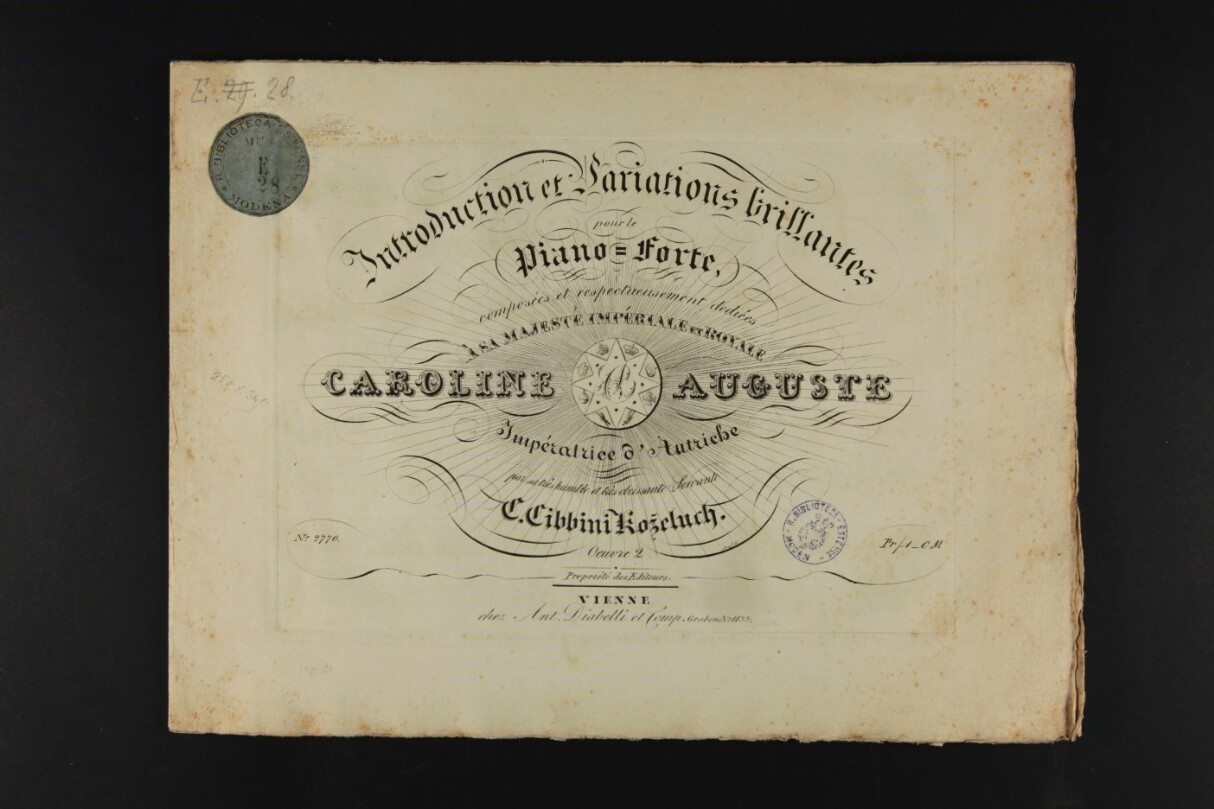 E. 27. 28.
R. BIBLIOTECA
E
28
MODENA
Introduction et Variations brillantes
pour le
Piano=Forte,
composées et respectueusement dediées
À SA MAJESTÉ IMPÉRIALE et ROYALE
CAROLINE AUGUSTE
Impératrice d'Autriche
par sa très humble et très obeissante Servante
C. Cibbini Koželuch.
Nr. 2770.
Oeuvre 2.
Propriété des Editeurs.
VIENNE
chez Ant. Diabelli et Comp. Graben No. 1133.
R. BIBLIOTECA ESTENSE